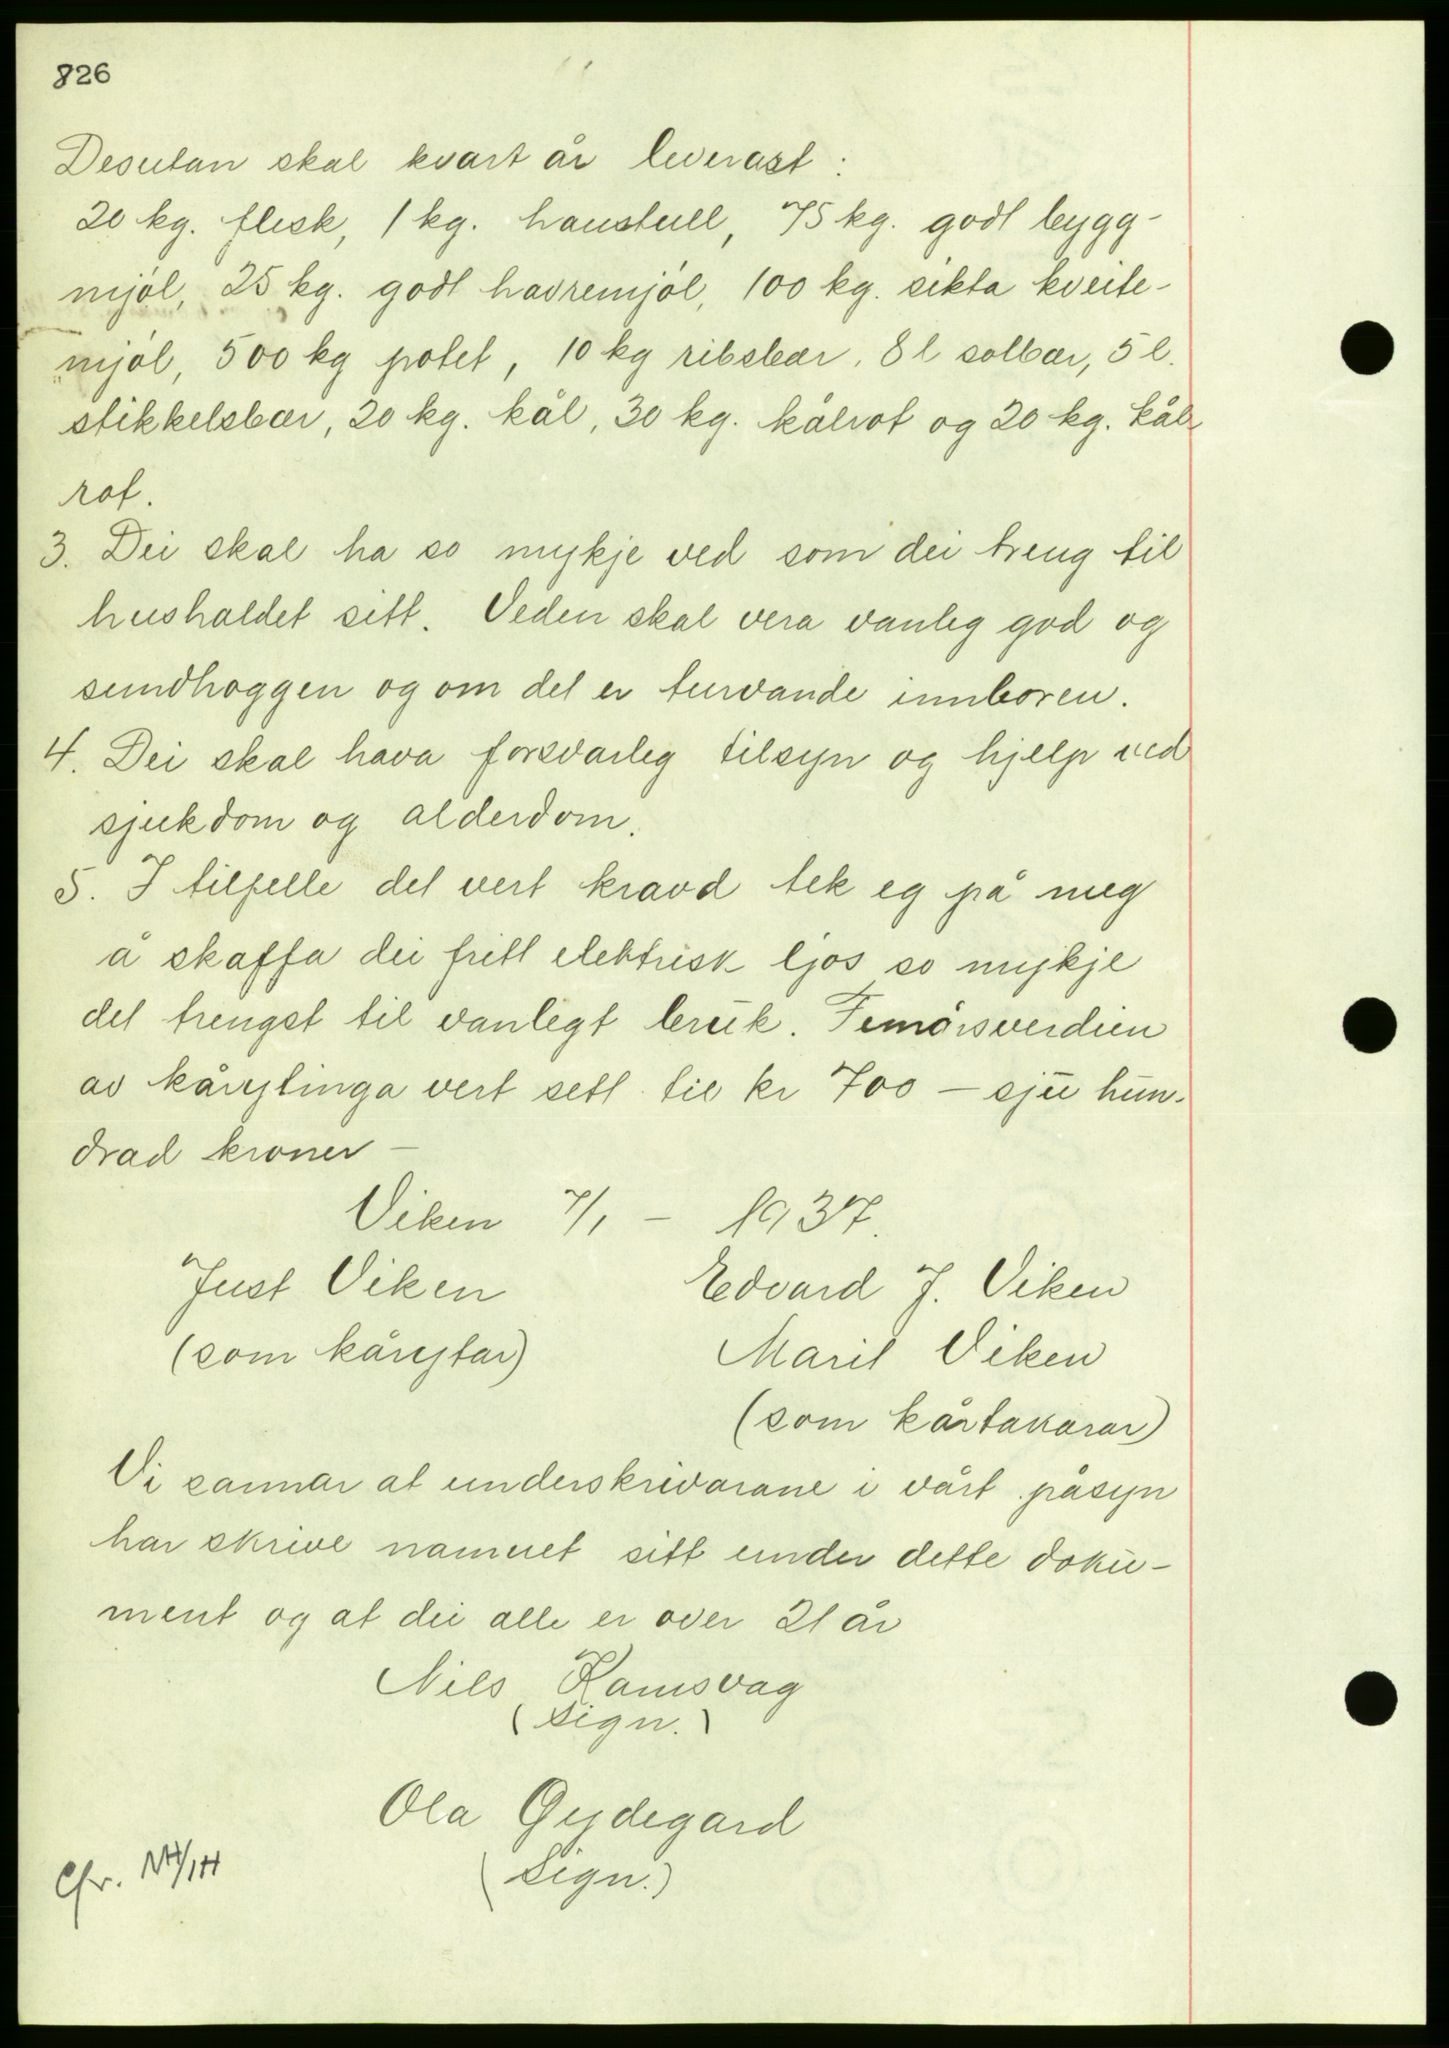 826
Desutan skal kvart år leverast:
20 kg. flesk, 1 kg. haustull, 75 kg. godt bygg-
mjøl, 25 kg. godt havremjøl, 100 kg. sikta kveite-
mjøl, 500 kg potet, 10 kg ribsbær, 8 l solbær, 5 l.
stikkelsbær, 20 kg. kål, 30 kg. kålrot og 20 kg. kål-
rot.
3. Dei skal ha so mykje ved som dei treng til
hushaldet sitt. Veden skal vera vanleg god og
sundhoggen og om det er turvande innboren.
4. Dei skal hava forsvarleg tilsyn og hjelp ved
sjukdom og alderdom.
5. I tilfelle det vert kravd tek eg på meg
å skaffa dei fritt elektrisk ljos so mykje
det trengst til vanlegt bruk. Femårsverdien
av kårytinga vert sett til kr 700 – sju hun-
drad kroner –
Viken 7/1 – 1937.
Just Viken Edvard J. Viken
(som kårytar) Marit Viken
(som kårtakarar)
Vi sannar at underskrivarane i vårt påsyn
har skrive namnet sitt under dette doku-
ment og at dei alle er over 21 år
Nils Ramsvag
(Sign.)
Ola Gydegard
(Sign.)
Cfr. NH/IH